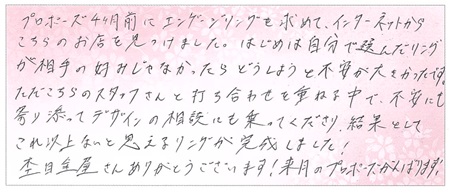 プロポーズ4ヶ月前にエンゲージリングを求めて、インターネットから
こちらのお店を見つけました。はじめは自分で選んだリング
が相手の好みじゃなかったらどうしようと不安が大きかったです。
ただこちらのスタッフさんと打ち合わせを重ねる中で、不安にも
寄り添ってデザインの相談にも乗ってくださり、結果として
これ以上ないと思えるリングが完成しました!
杢目金屋さんありがとうございます!来月のプロポーズがんばります!